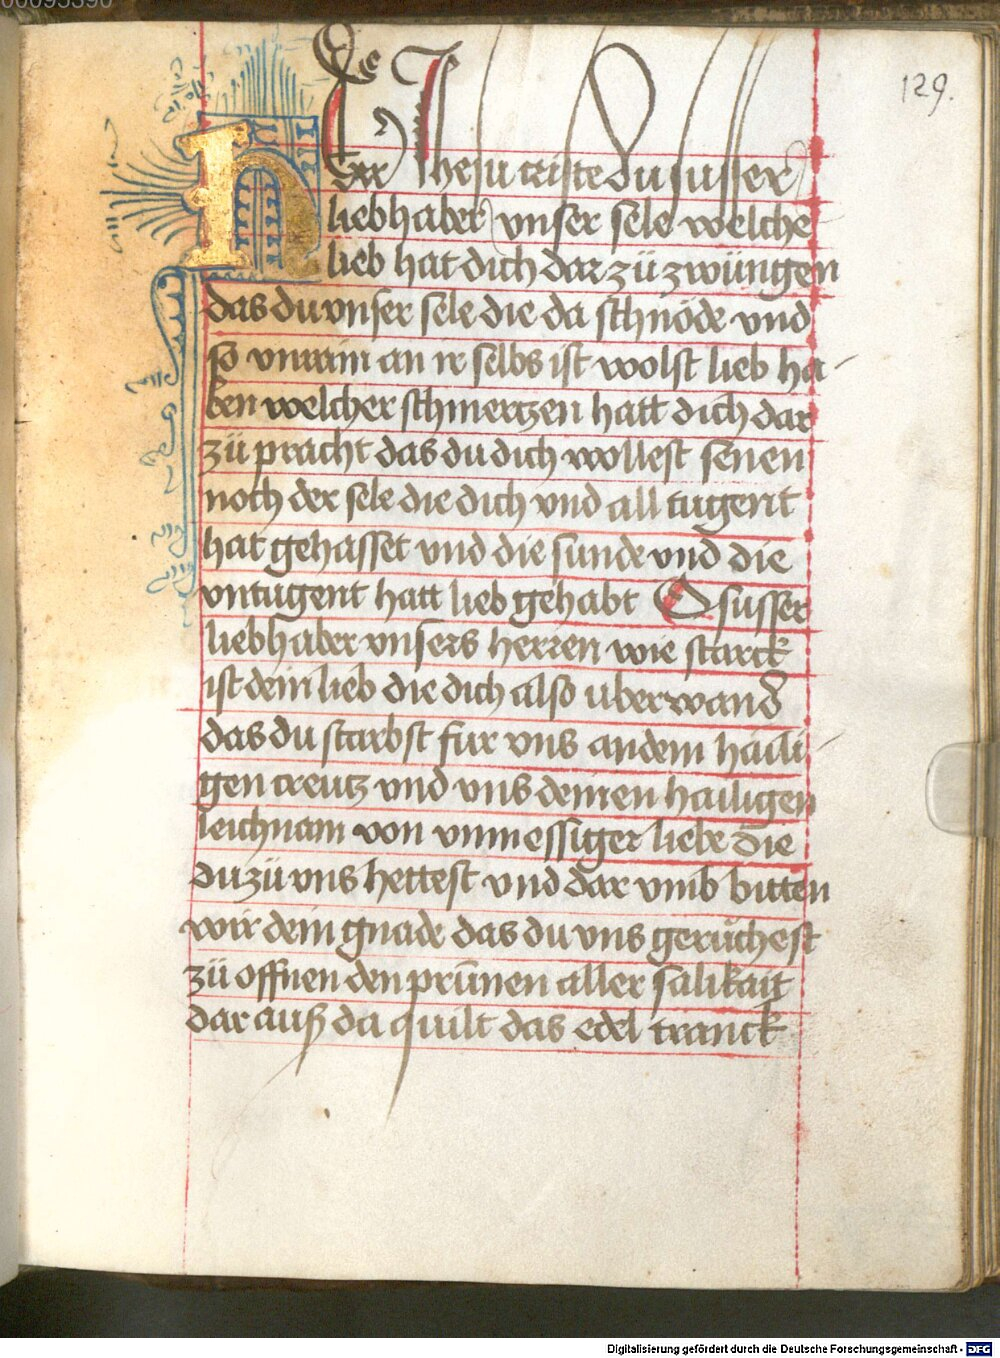 00095390
129.
HErr Jhesu criste du susser
liebhaber vnser sele welche
lieb hat dich dar zü zwüngen
das du vnser sele die da schnöde vnd
so vnrain an ir selbs ist wolst lieb ha-
ben welcher schmertzen hatt dich dar
zü pracht das du dich wollest senen
noch der sele die dich vnd all tugent
hat gehasset vnd die sunde vnd die
vntugent hatt lieb gehabt O susser
liebhaber vnsers herzen wie starck
ist dein lieb die dich also uberwand
das du starbst fur vns an dem haili-
gen creutz vnd vns deinen hailigen
leichnam von vnmessiger liebe die
du zü vns hettest vnd dar vmb bitten
wir dein gnade das du vns gerüchest
zü offnen den prunnen aller salikait
dar auß da quilt das edel tranck
Digitalisierung gefördert durch die Deutsche Forschungsgemeinschaft - DFG